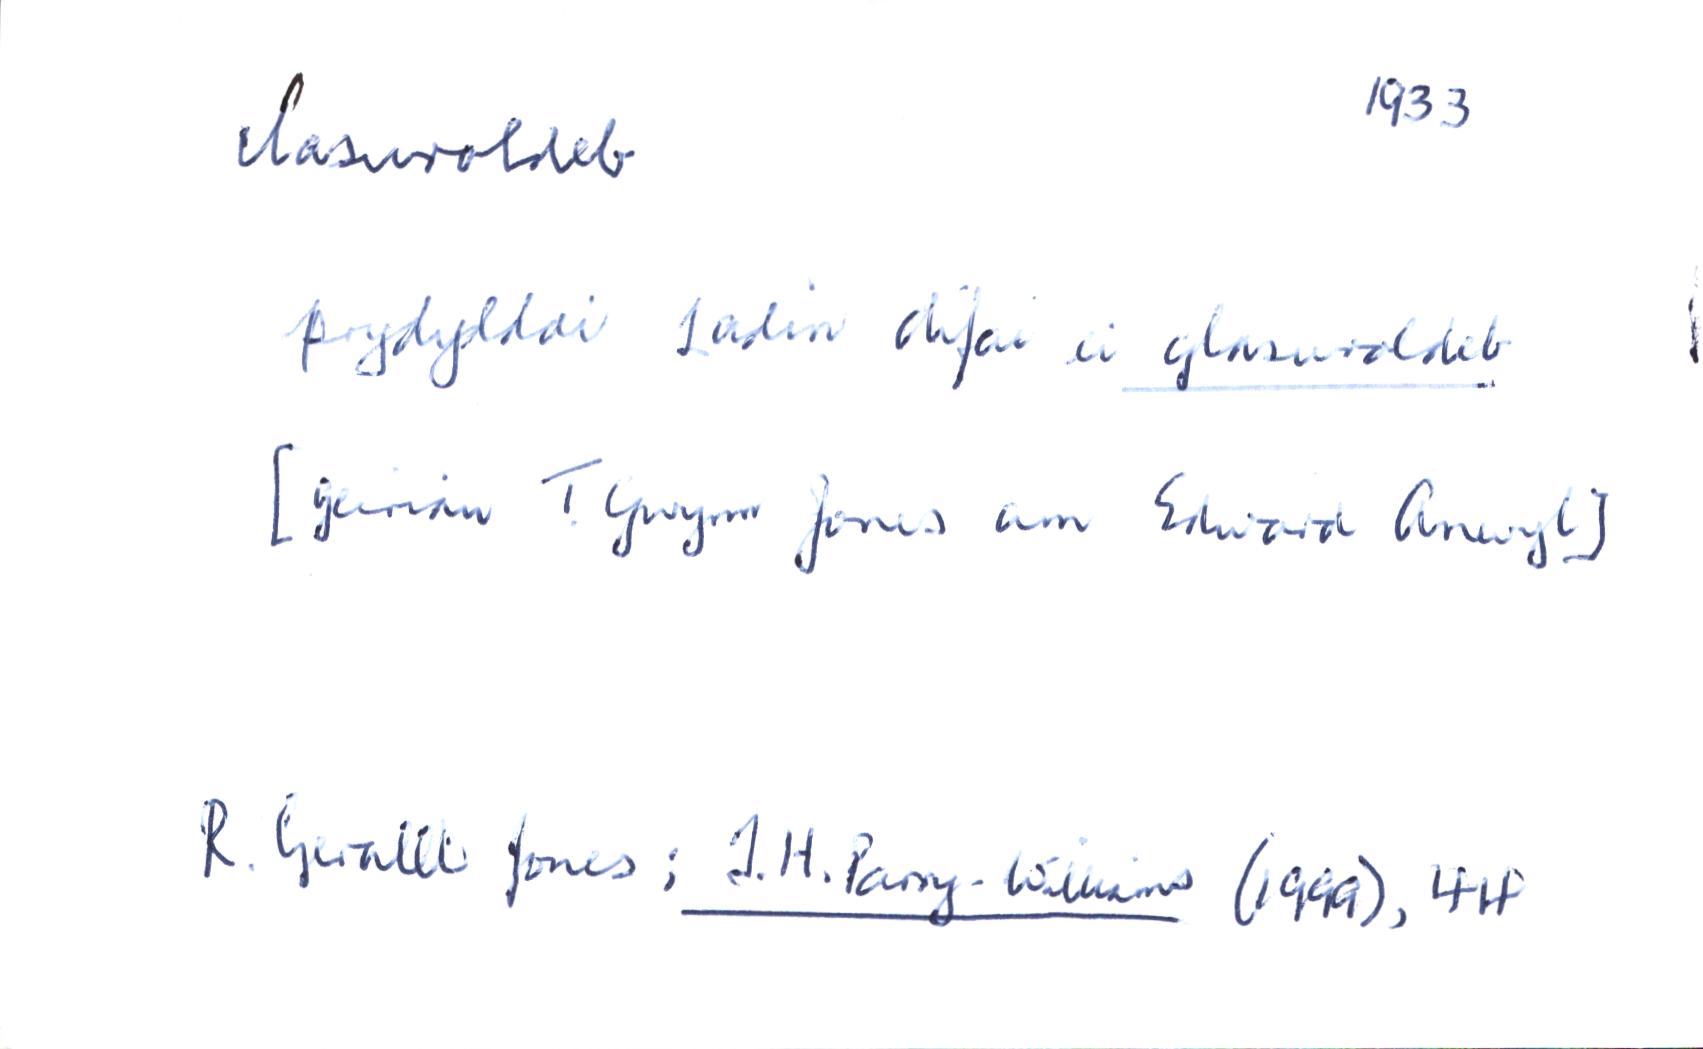 clasuroldeb 1933
prydyddai Ladin difai ei glasuroldeb
[geiriau T. Gwynn Jones am Edward Anwyl]
R. Gerallt Jones; T.H. Parry-Williams (1999), 44